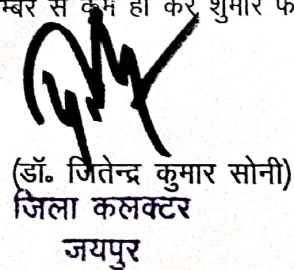 म्बर से कम हो कर शुमार फ
(डॉ. जितेन्द्र कुमार सोनी)
जिला कलक्टर
जयपुर